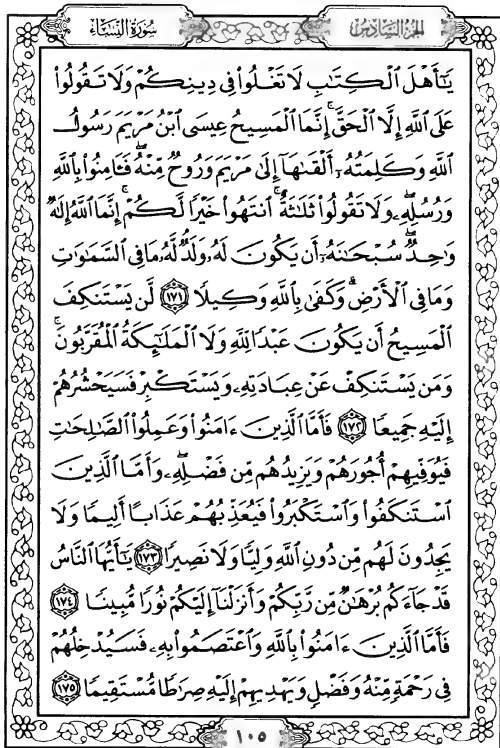 سُورَةُ النِّسَاءِ
الجُزْءُ السَّادِسُ
يَٰٓأَهۡلَ ٱلۡكِتَٰبِ لَا تَغۡلُواْ فِي دِينِكُمۡ وَلَا تَقُولُواْ
عَلَى ٱللَّهِ إِلَّا ٱلۡحَقَّۚ إِنَّمَا ٱلۡمَسِيحُ عِيسَى ٱبۡنُ مَرۡيَمَ رَسُولُ
ٱللَّهِ وَكَلِمَتُهُۥٓ أَلۡقَىٰهَآ إِلَىٰ مَرۡيَمَ وَرُوحٞ مِّنۡهُۖ فَـَٔامِنُواْ بِٱللَّهِ
وَرُسُلِهِۦۖ وَلَا تَقُولُواْ ثَلَٰثَةٌۚ ٱنتَهُواْ خَيۡرٗا لَّكُمۡۚ إِنَّمَا ٱللَّهُ إِلَٰهٞ
وَٰحِدٞۖ سُبۡحَٰنَهُۥٓ أَن يَكُونَ لَهُۥ وَلَدٞۘ لَّهُۥ مَا فِي ٱلسَّمَٰوَٰتِ
وَمَا فِي ٱلۡأَرۡضِۗ وَكَفَىٰ بِٱللَّهِ وَكِيلٗا ١٧١ لَّن يَسۡتَنكِفَ
ٱلۡمَسِيحُ أَن يَكُونَ عَبۡدٗا لِّلَّهِ وَلَا ٱلۡمَلَٰٓئِكَةُ ٱلۡمُقَرَّبُونَۚ
وَمَن يَسۡتَنكِفۡ عَنۡ عِبَادَتِهِۦ وَيَسۡتَكۡبِرۡ فَسَيَحۡشُرُهُمۡ
إِلَيۡهِ جَمِيعٗا ١٧٢ فَأَمَّا ٱلَّذِينَ ءَامَنُواْ وَعَمِلُواْ ٱلصَّٰلِحَٰتِ
فَيُوَفِّيهِمۡ أُجُورَهُمۡ وَيَزِيدُهُم مِّن فَضۡلِهِۦۖ وَأَمَّا ٱلَّذِينَ
ٱسۡتَنكَفُواْ وَٱسۡتَكۡبَرُواْ فَيُعَذِّبُهُمۡ عَذَابًا أَلِيمٗا وَلَا
يَجِدُونَ لَهُم مِّن دُونِ ٱللَّهِ وَلِيّٗا وَلَا نَصِيرٗا ١٧٣ يَٰٓأَيُّهَا ٱلنَّاسُ
قَدۡ جَآءَكُم بُرۡهَٰنٞ مِّن رَّبِّكُمۡ وَأَنزَلۡنَآ إِلَيۡكُمۡ نُورٗا مُّبِينٗا ١٧٤
فَأَمَّا ٱلَّذِينَ ءَامَنُواْ بِٱللَّهِ وَٱعۡتَصَمُواْ بِهِۦ فَسَيُدۡخِلُهُمۡ
فِي رَحۡمَةٖ مِّنۡهُ وَفَضۡلٖ وَيَهۡدِيهِمۡ إِلَيۡهِ صِرَٰطٗا مُّسۡتَقِيمٗا ١٧٥
١٠٥